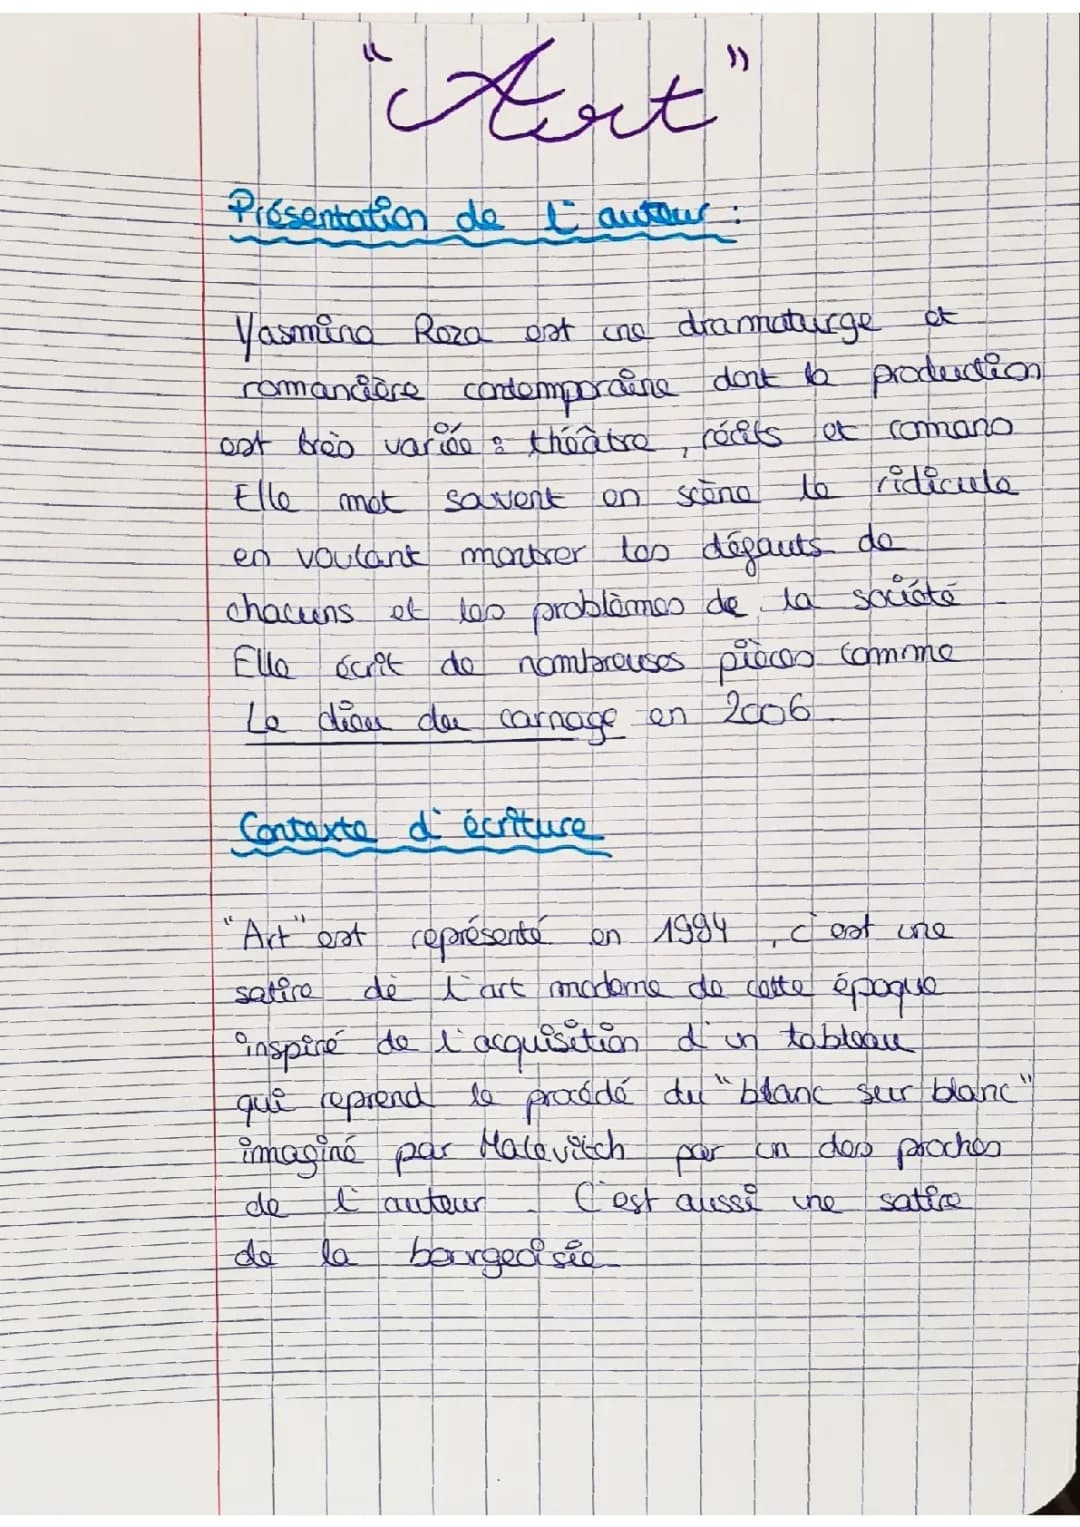 "Art"
Présentation de l'auteur :
Yasmina Reza est une dramaturge et
romancière contemporaine dont la production
est très variée : théâtre, récits et romans
Elle met souvent en scène le ridicule
en voulant montrer les défauts de
chacuns et les problèmes de la société
Elle écrit de nombreuses pièces comme
Le dieu du carnage en 2006
Contexte d'écriture
"Art" est représenté en 1994, c'est une
satire de l'art moderne de cette époque
inspiré de l'acquisition d'un tableau
qui reprend le procédé du "blanc sur blanc"
imaginé par Malevitch par un des proches
de l'auteur. C'est aussi une satire
de la bourgeoisie